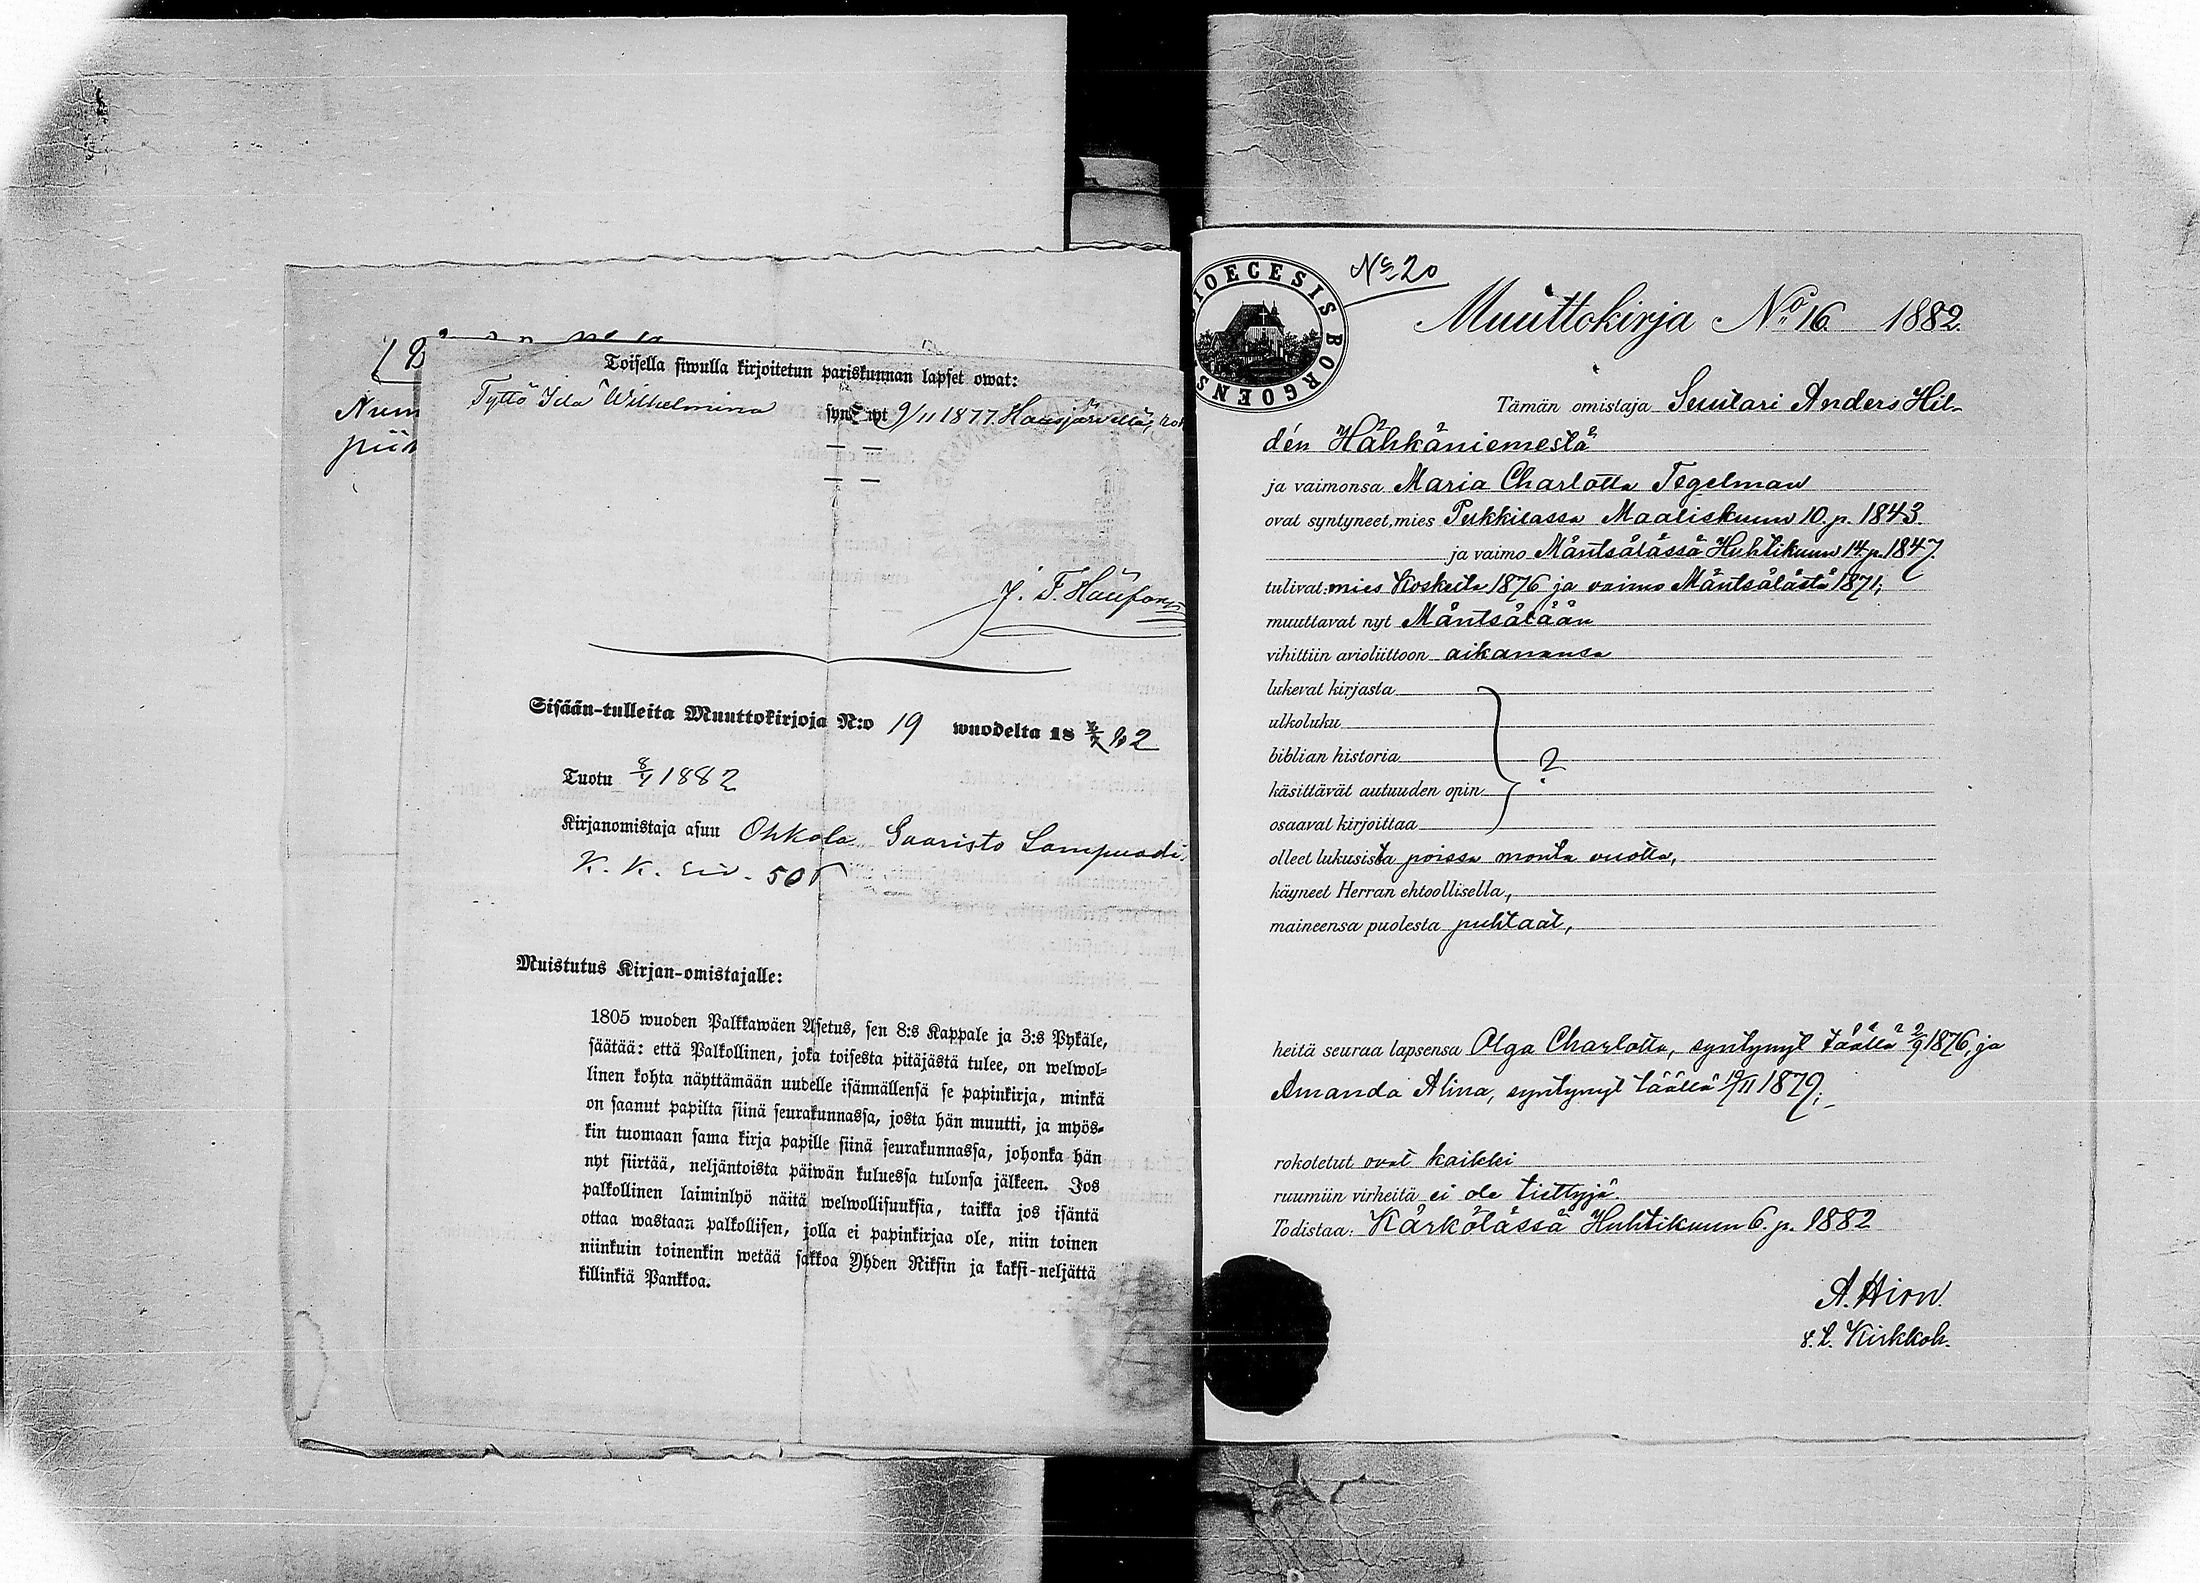 Num
piit
Toisella siwulla kirjoitetun pariskunnan lapset owat:
Tyttö Ida Wilhelmina syn 9/11 1877. Hausjärwellä,
J. F.
Sisään-tulleita Muuttokirjoja N:o 19 wuodelta 18 82
Tuotu 1882
Kirjanomistaja asuu Ohkola Saaristo
K. K. Siv. 508
Muistutus Kirjan-omistajalle:
1805 wuoden Palkkawäen Asetus, sen 8:s Kappale ja 3:s Pykäle,
säätää: että Palkollinen, joka toisesta pitäjästä tulee, on welwol=
linen kohta näyttämään uudelle isännällensä se papinkirja, minkä
on saanut papilta siinä seurakunnassa, josta hän muutti, ja myös=
kin tuomaan sama kirja papille siinä seurakunnassa, johonka hän
nyt siirtää, neljäntoista päiwän kuluessa tulonsa jälkeen. Jos
palkollinen laiminlyö näitä welwollisuuksia, taikka jos isäntä
ottaa wastaan palkollisen, jolla ei papinkirjaa ole, niin toinen
niinkuin toinenkin wetää sakkoa Yhden Riksin ja kaksi-neljättä
killinkiä Pankkoa.
IOECESIS BORGOENS
No 20
Muuttokirja No 16. 1882.
Tämän omistaja Suutari Anders Hil-
dén Hähkäniemestä
ja vaimonsa Maria Charlotta Tegelman
ovat syntyneet, mies Pukkilassa Maaliskuun 10. p. 1843.
ja vaimo Mäntsälässä Huhtikuun 14. p. 1847.
tulivat: mies Koskelta 1876 ja vaimo Mäntsälästä 1871;
muuttavat nyt Mäntsälään
vihittiin avioliittoon aikanansa
lukevat kirjasta
ulkoluku
biblian historia ?
käsittävät autuuden opin
osaavat kirjoittaa
olleet lukusista poissa monta vuotta,
käyneet Herran ehtoollisella,
maineensa puolesta puhtaat,
heitä seuraa lapsensa Olga Charlotta, syntynyt täällä 2/9 1876, ja
Amanda Alina, syntynyt täällä 19/11 1879;
rokotetut ovat kaikki
ruumiin virheitä ei ole tiettyjä.
Todistaa: Kärkölässä Huhtikuun 6. p. 1882
A. Hirn.
v. t. Kirkkoh.